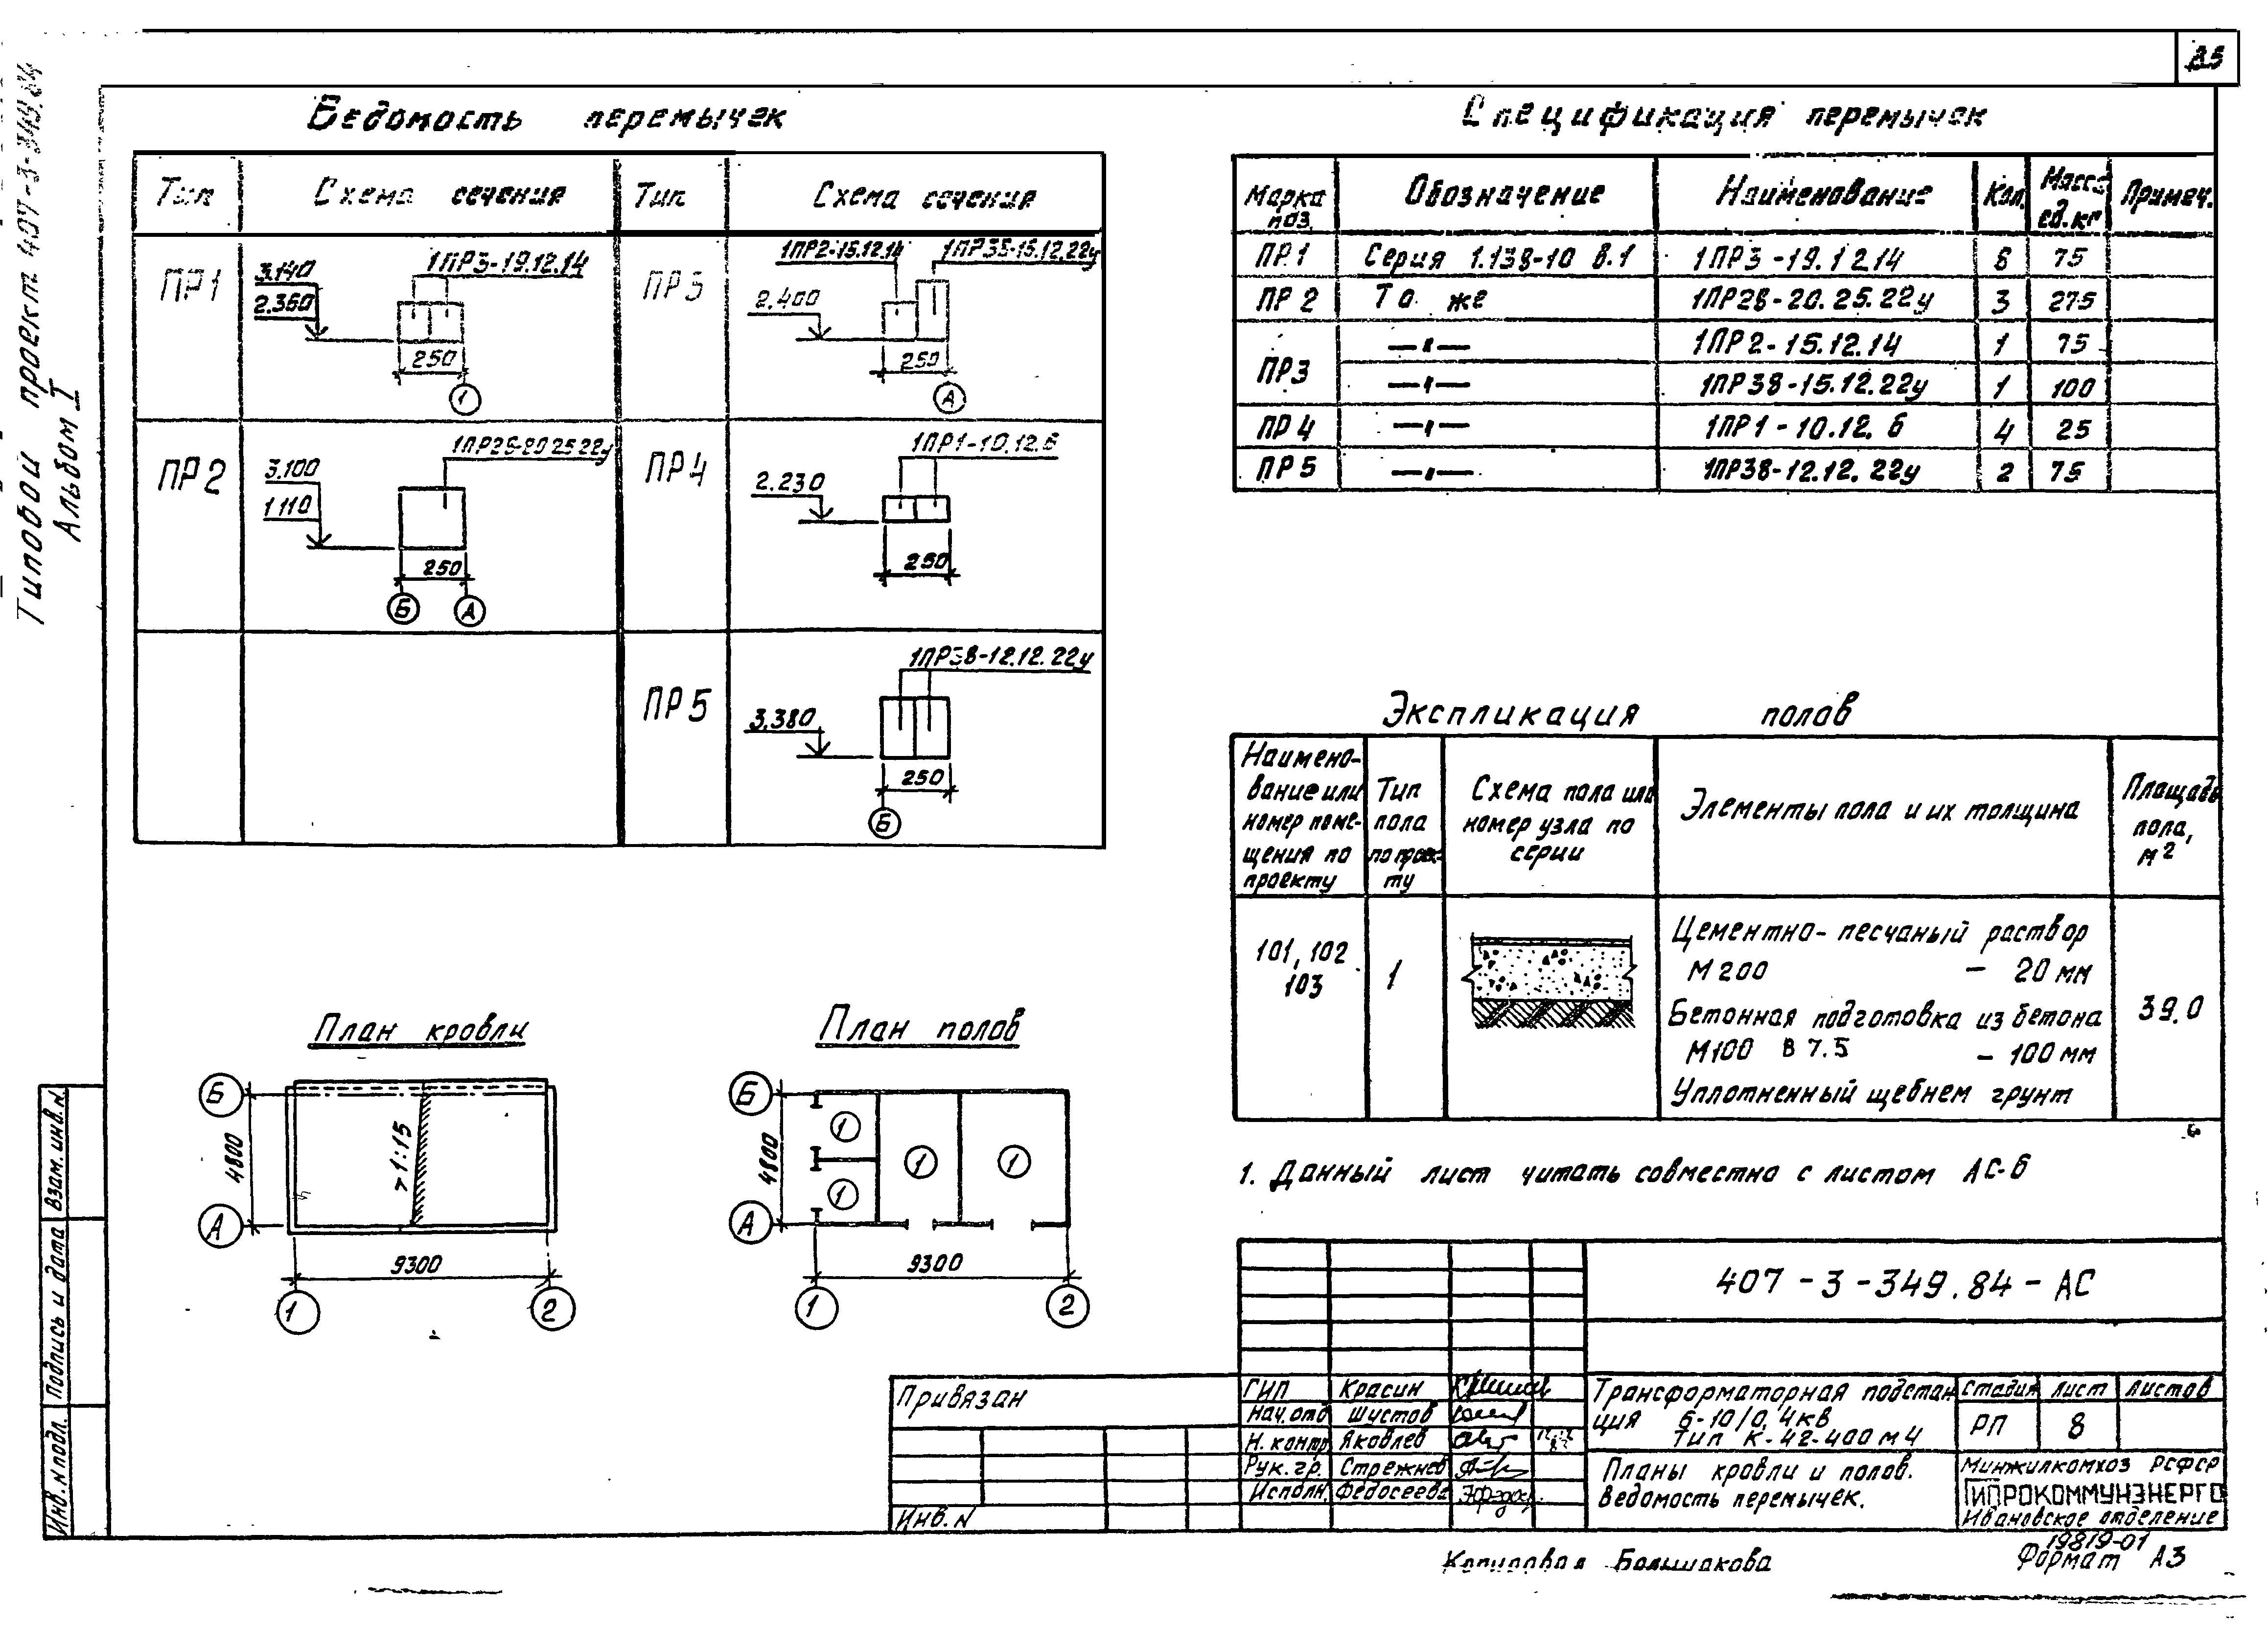 25
Типовой проект 407-3-349.84
Альбом I
Ведомость перемычек
Тип Схема сечения Тип Схема сечения
ПР1
3.140
2.360
1ПР3-19.12.14
250
1
ПР3
1ПР2-15.12.14 1ПР38-15.12.22у
2.400
250
А
ПР2
3.100
1.110
1ПР28-20.25.22у
250
Б А
ПР4
1ПР1-10.12.6
2.230
250
ПР5
1ПР38-12.12.22у
3.380
250
Б
Спецификация перемычек
Марка поз. Обозначение Наименование Кол. Масса ед.кг Примеч.
ПР1 Серия 1.138-10 в.1 1ПР3-19.12.14 6 75
ПР2 То же 1ПР28-20.25.22у 3 275
ПР3 —"— 1ПР2-15.12.14 1 75
—"— 1ПР38-15.12.22у 1 100
ПР4 —"— 1ПР1-10.12.6 4 25
ПР5 —"— 1ПР38-12.12.22у 2 75
Экспликация полов
Наимено-
вание или
номер поме-
щения по
проекту
Тип
пола
по проек-
ту
Схема пола или
номер узла по
серии
Элементы пола и их толщина
Площадь
пола,
м2
101, 102
103
1
Цементно-песчаный раствор
М200 – 20мм
Бетонная подготовка из бетона
М100 В7.5 – 100мм
Уплотненный щебнем грунт
39.0
1. Данный лист читать совместно с листом АС-6
План кровли
Б
А
4800
>1:15
9300
1 2
План полов
Б
А
4800
1
1
1
1
9300
1 2
407-3-349.84-АС
Привязан
Инв.N
ГИП Красин
Нач.отд Шустов
Н.контр Яковлев
Рук.гр. Стрежнев
Исполн. Федосеева
Трансформаторная подстан
ция 6-10/0,4кв
Тип К-42-400м4
Стадия Лист Листов
РП 8
Планы кровли и полов.
Ведомость перемычек.
Минжилкомхоз РСФСР
ГИПРОКОММУНЭНЕРГО
Ивановское отделение
19819-01
Копировал Большакова
Формат А3
Взам.инв.N
Подпись и дата
Инв.Nподл.